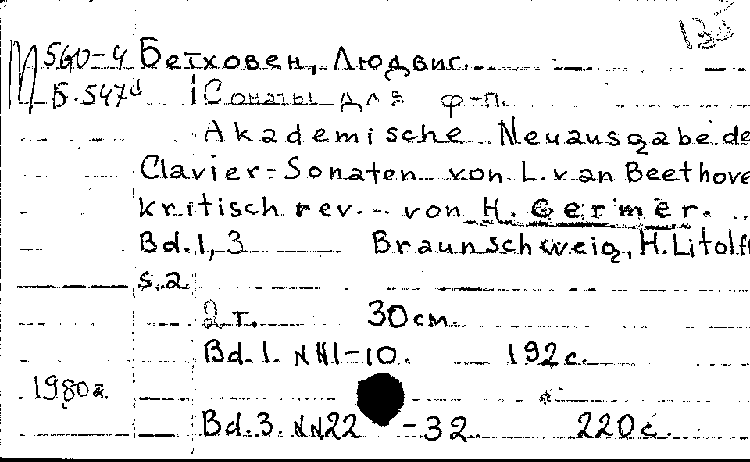 132
Ц560-4 Бетховен, Людвиг.
Б.547d [Сонаты для ф-п.
Akademische Neuausgabe de
Clavier-Sonaten von L. van Beethove
kritisch rev. von H. Germer.
Bd. 1, 3 Braunschweig, H. Litolff
s.a.
2 т. 30 см.
Bd. 1. NN1-10. 192 с.
1980г.
Bd. 3. NN22-32. 220 с.